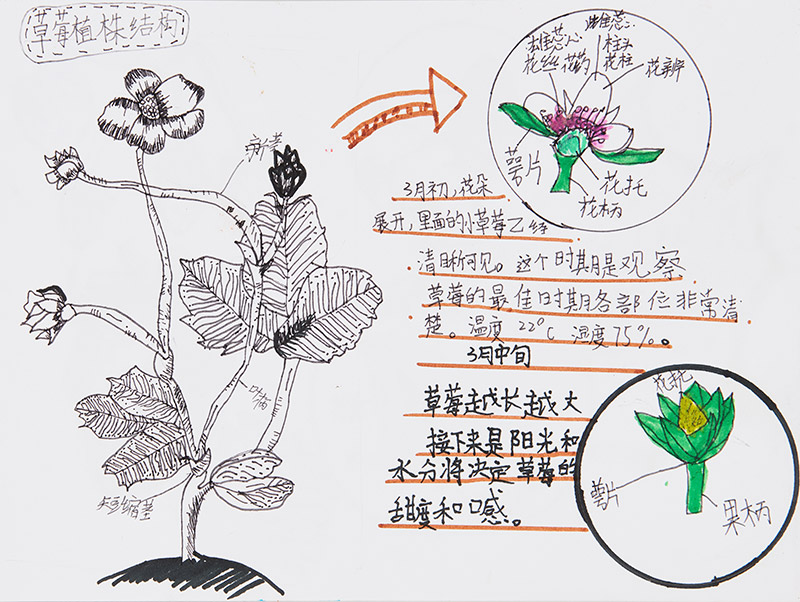 草莓植株结构
新茎
叶柄
短缩茎
雄蕊
花丝 花药
雌蕊
柱头
花柱
花瓣
萼片
花托
花柄
3月初,花朵
展开,里面的小草莓已经
清晰可见。这个时期是观察
草莓的最佳时期各部位非常清
楚。温度22°C 湿度75%。
3月中旬
草莓越长越大
接下来是阳光和
水分将决定草莓的
甜度和口感。
花托
萼片
果柄